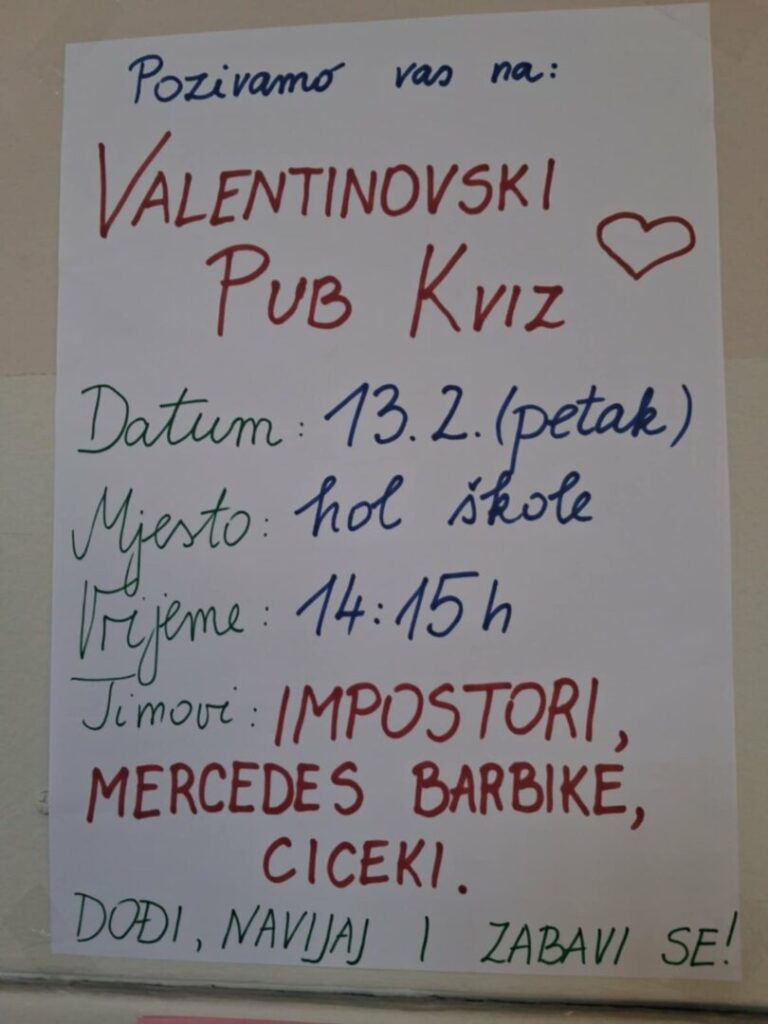 Pozivamo vas na:
VALENTINOVSKI
PUB KVIZ
Datum: 13.2. (petak)
Mjesto: hol škole
Vrijeme: 14:15h
Timovi: IMPOSTORI,
MERCEDES BARBIKE,
CICEKI.
DOĐI, NAVIJAJ I ZABAVI SE!